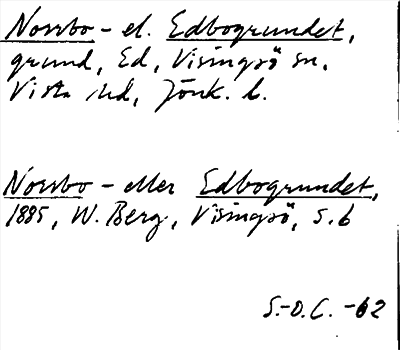 Norrbo- el. Edbogrundet,
grund, Ed, Visingsö sn,
Vista hd, Jönk. l.
Norrbo- eller Edbogrundet,
1885, W. Berg, Visingsö, s. 6
S.-O.C. -62